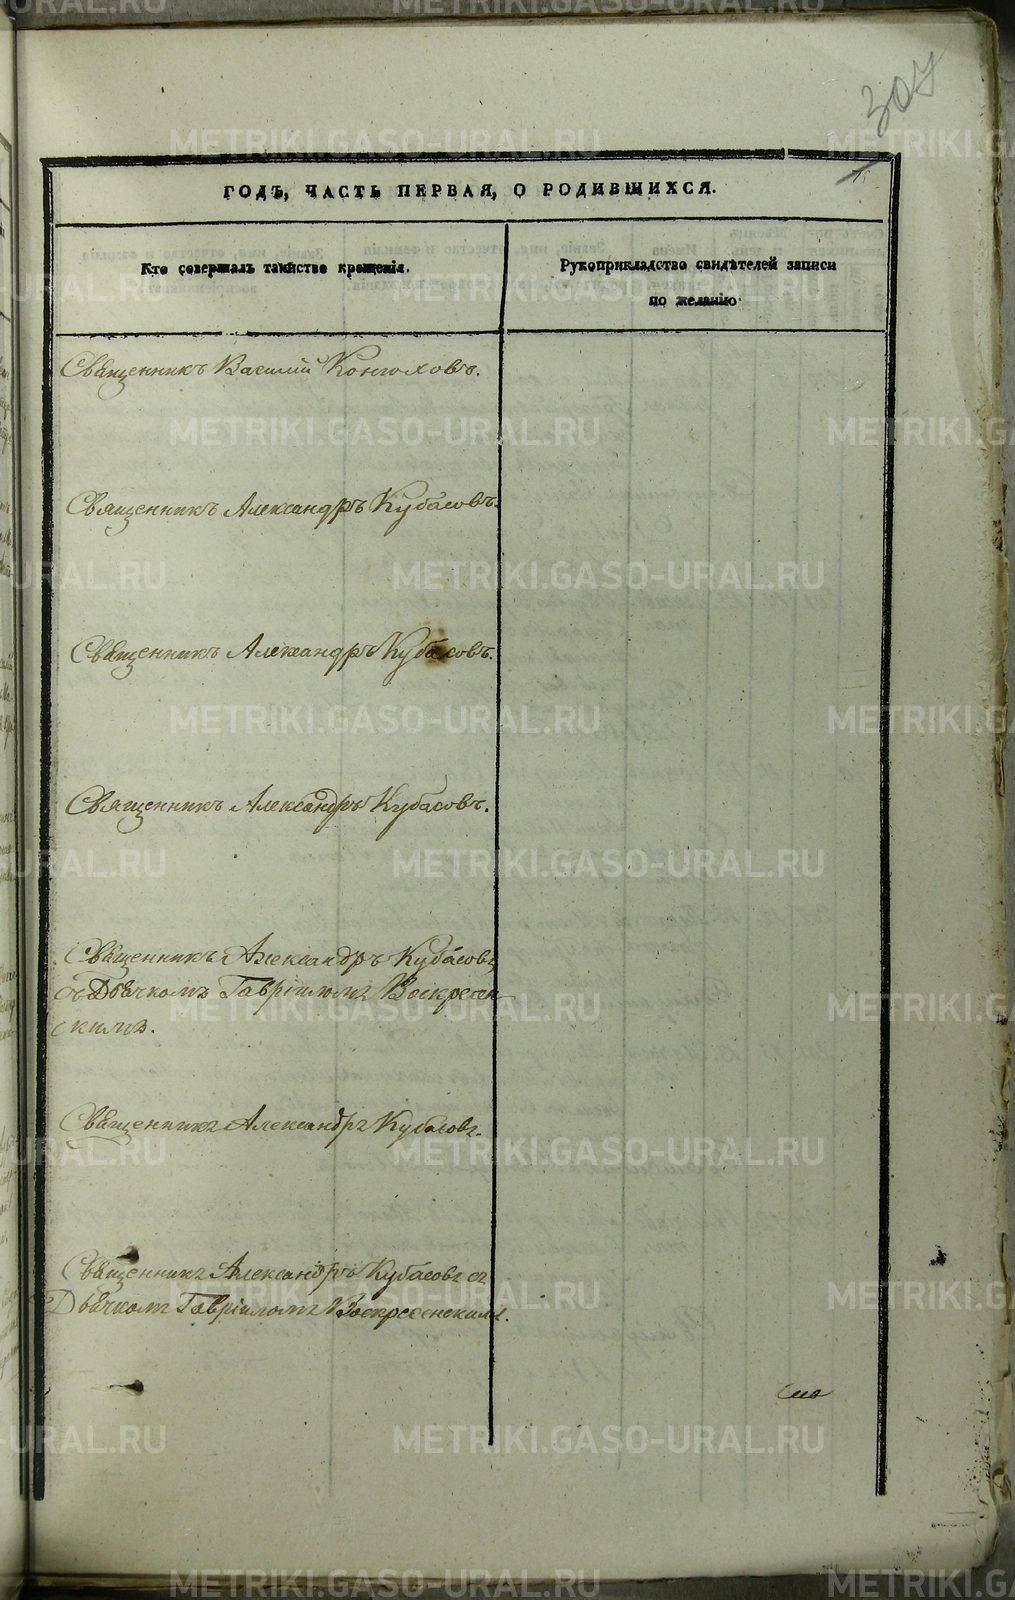 307
ГОДЪ, ЧАСТЬ ПЕРВАЯ, О РОДИВШИХСЯ.
Кто совершалъ таинство крещенія.
Рукоприкладство свидѣтелей записи
по желанію
Священникъ Василій Конюховъ.
Священникъ Александръ Кубасовъ.
Священникъ Александръ Кубасовъ.
Священникъ Александръ Кубасовъ.
Священникъ Александръ Кубасовъ
съ Дьячкомъ Гавріиломъ Воскресен-
скимъ.
Священникъ Александръ Кубасовъ.
Священникъ Александръ Кубасовъ съ
Дьячкомъ Гавріиломъ Воскресенскимъ.
METRIKI.GASO-URAL.RU